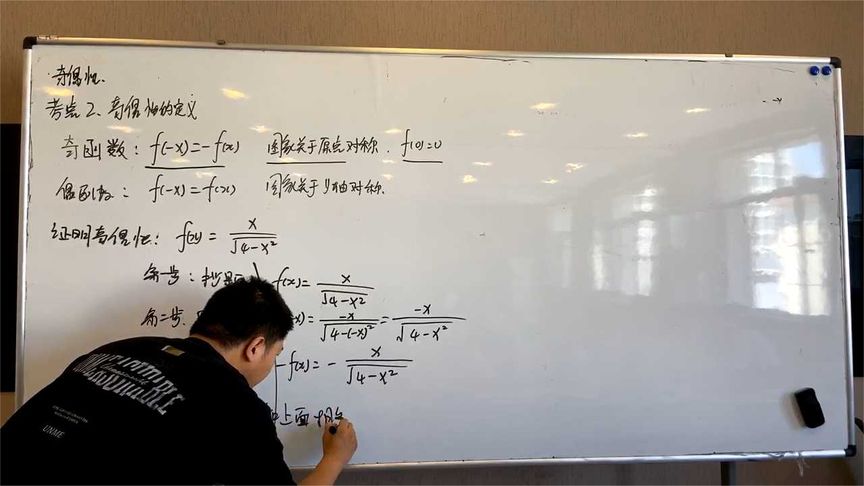 奇偶性.
考点2、奇偶性的定义
奇函数: f(-x)=-f(x) 图象关于原点对称. f(0)=0
偶函数: f(-x)=f(x) 图象关于y轴对称.
证明奇偶性: f(x) = x/√(4-x²)
第一步: 抄题 f(x)= x/√(4-x²)
第二步. x)= -x/√(4-(-x)²) = -x/√(4-x²)
-f(x)= - x/√(4-x²)
上面
UNME